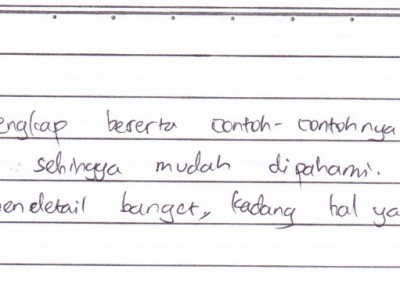 engkap beserta contoh-contohnya
sehingga mudah dipahami.
mendetail banget, kadang hal ya